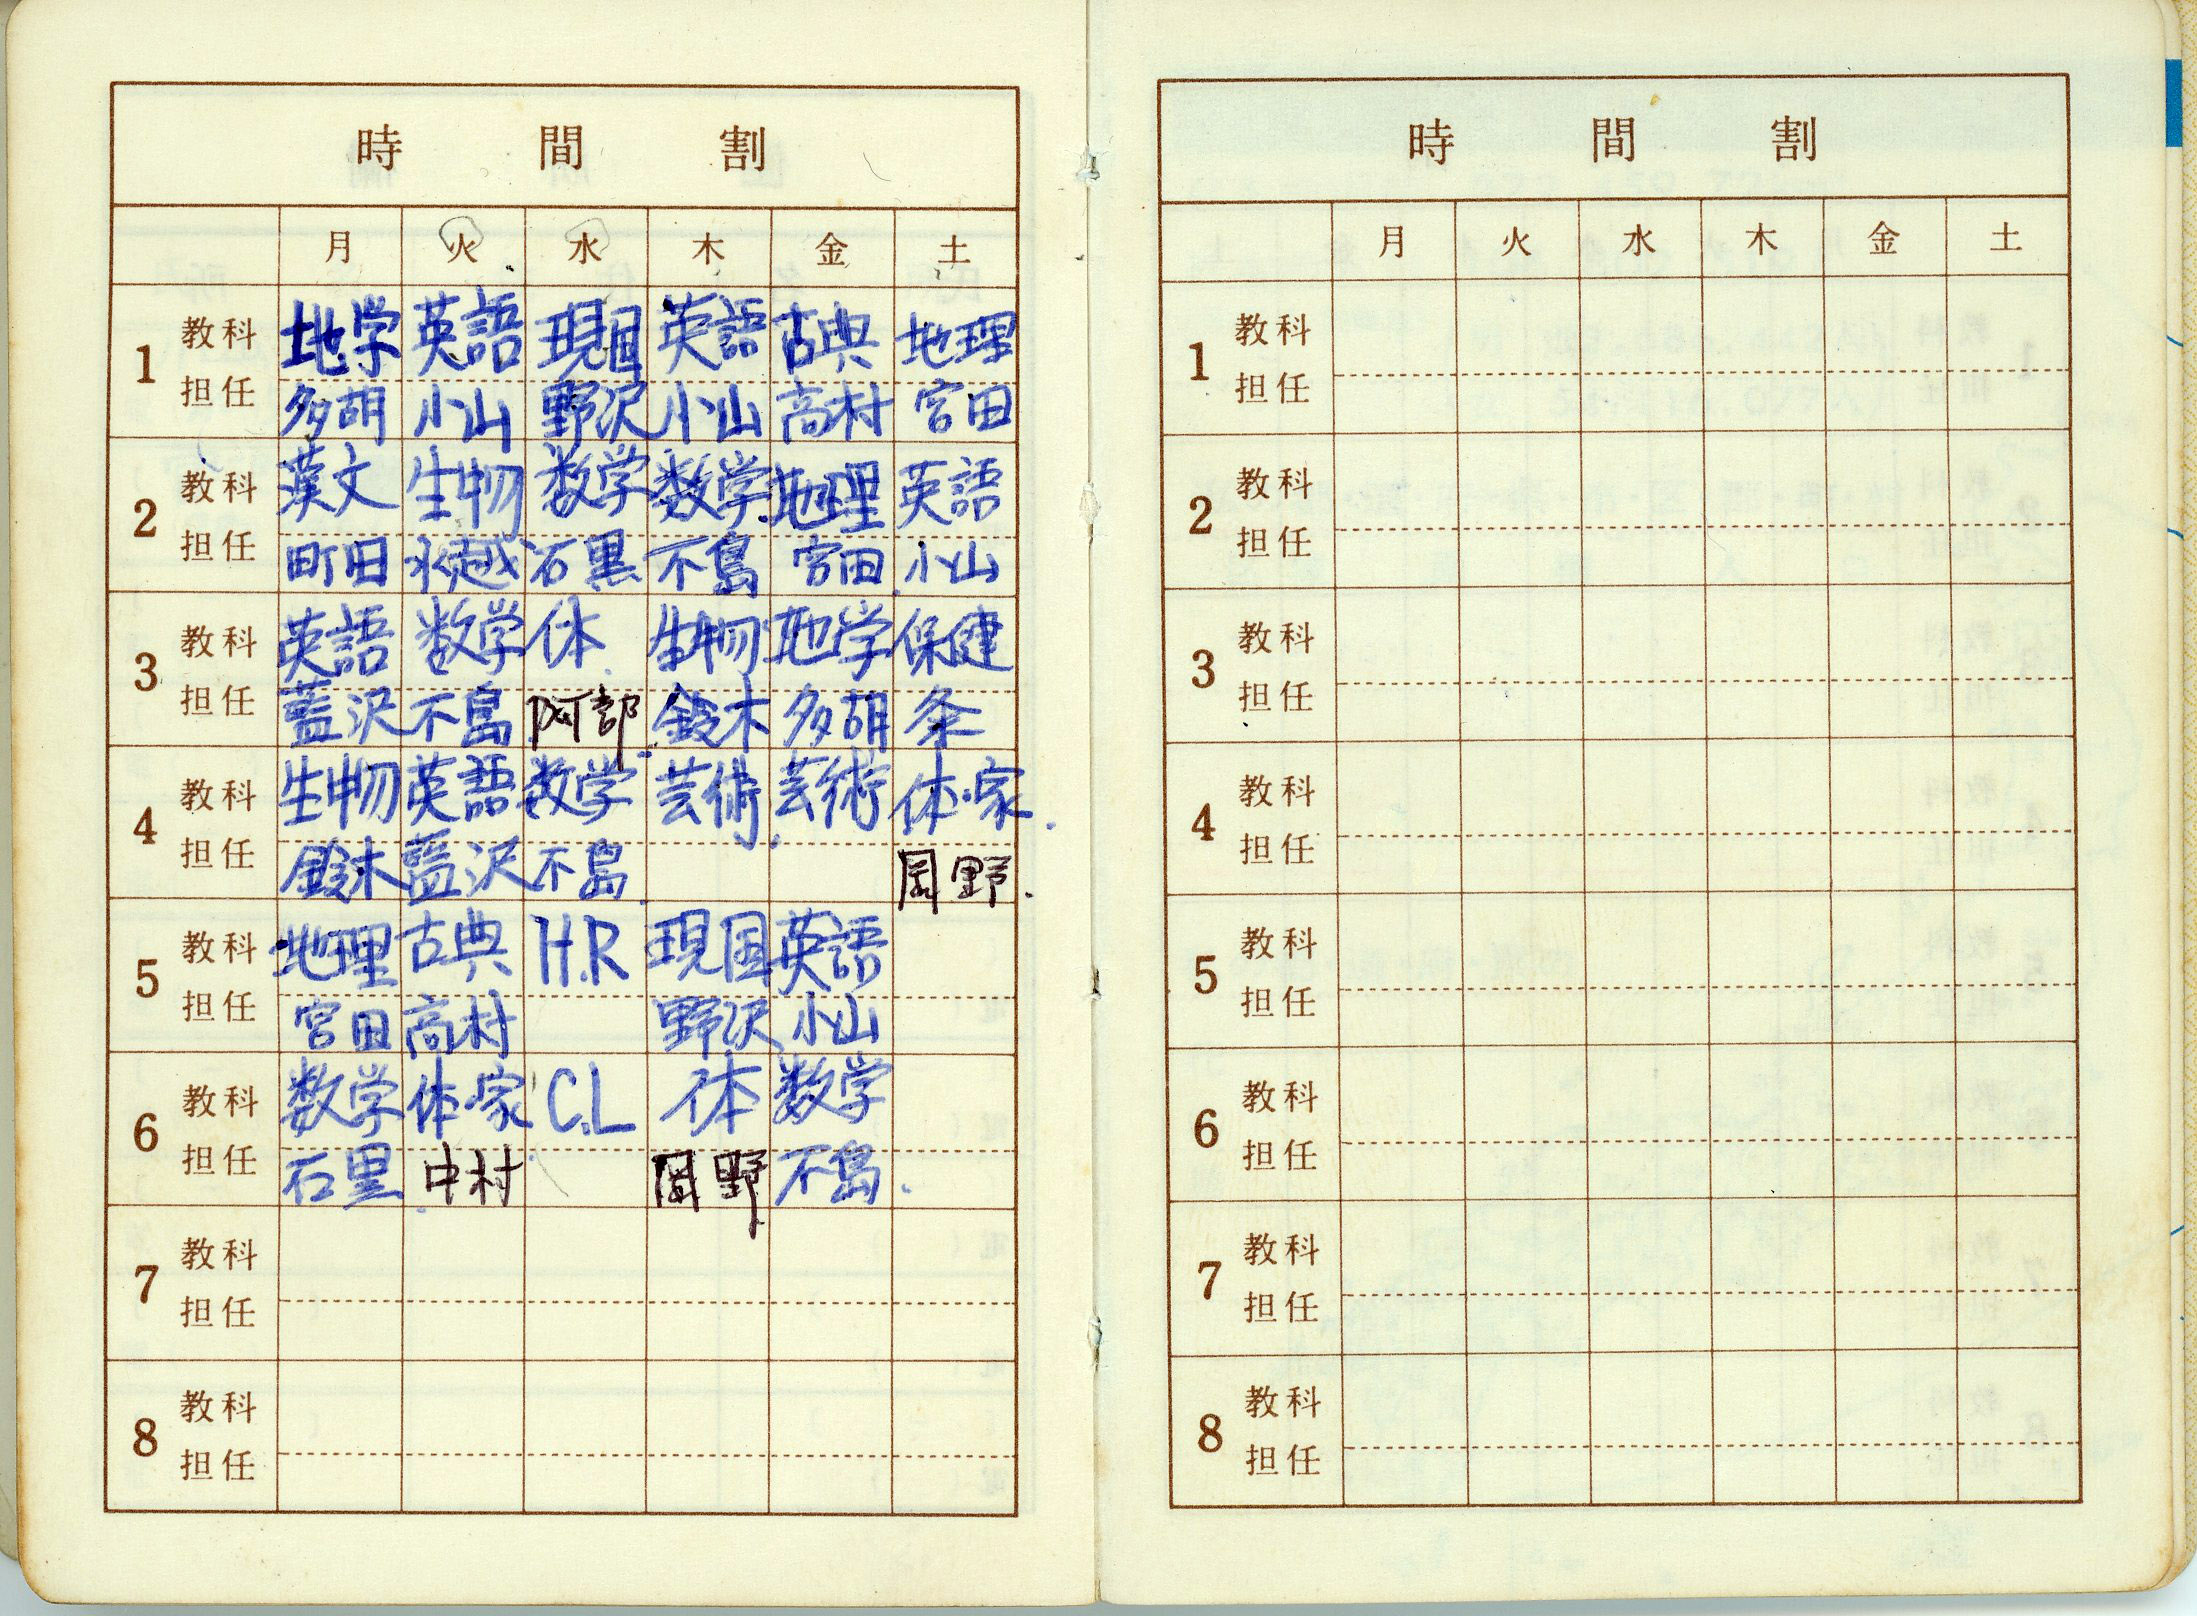 時間割
月 火 水 木 金 土
1 教科 地学 英語 現国 英語 古典 地理
担任 多胡 小山 野沢 小山 高村 宮田
2 教科 漢文 生物 数学 数学 地理 英語
担任 町田 水越 石黒 不島 宮田 小山
3 教科 英語 数学 体 生物 地学 保健
担任 藍沢 不島 阿部 鈴木 多胡 条
4 教科 生物 英語 数学 芸術 芸術 体・家
担任 鈴木 藍沢 不島 岡野
5 教科 地理 古典 H.R 現国 英語
担任 宮田 高村 野沢 小山
6 教科 数学 体・家 C.L 体 数学
担任 石黒 中村 岡野 不島
7 教科
担任
8 教科
担任
時間割
月 火 水 木 金 土
1 教科
担任
2 教科
担任
3 教科
担任
4 教科
担任
5 教科
担任
6 教科
担任
7 教科
担任
8 教科
担任